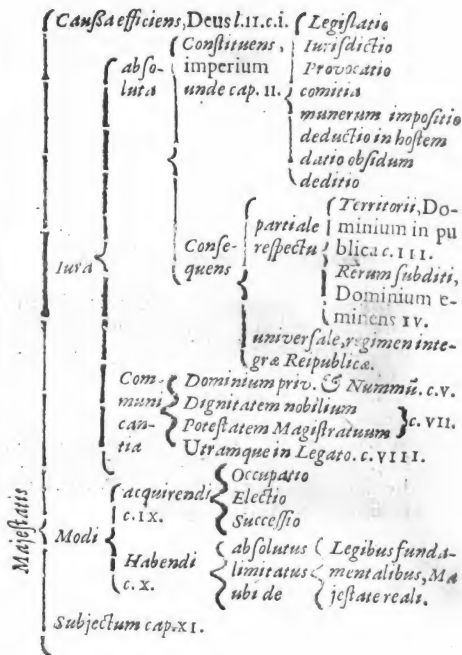 Caußa efficiens, Deus l.II.c.i.
Iura
absoluta
Constituens,
imperium
unde cap. II.
Legislatio
Iurisdictio
Provocatio
comitia
munerum impositio
deductio in hostem
datio obsidum
deditio
Consequens
partiale
respectu
Territorii, Do-
minium in pu
blica c. III.
Rerum subditi,
Dominium e-
minens IV.
universale, regimen inte-
græ Reipublicæ.
Com-
muni
can-
tia
Dominium priv. & Nummū. c.V.
Dignitatem nobilium
Potestatem Magistratuum
c. VII.
Utramque in Legato. c.VIII.
Majestatis
Modi
acquirendi
c. IX.
Occupatio
Electio
Successio
Habendi
c. X.
absolutus
limitatus
ubi de
Legibus funda-
mentalibus, Ma
jestate reali.
Subjectum cap. XI.